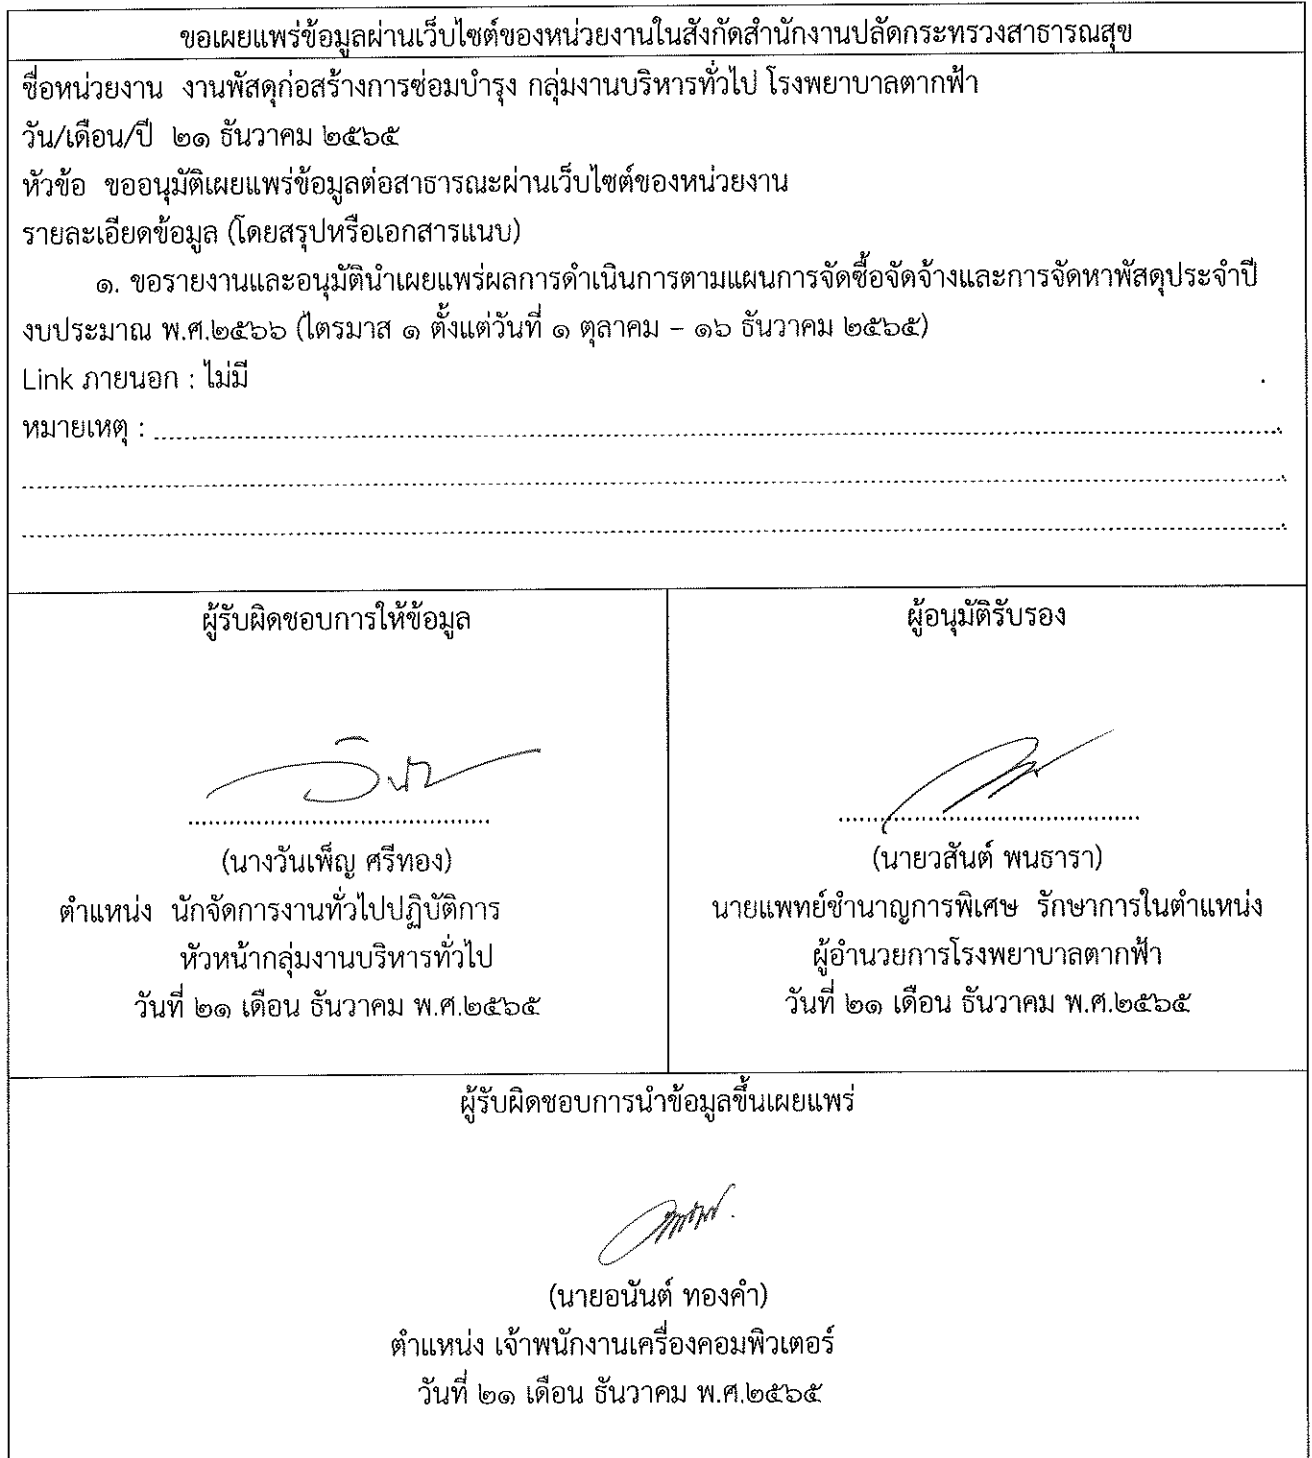 ขอเผยแพร่ข้อมูลผ่านเว็บไซต์ของหน่วยงานในสังกัดสำนักงานปลัดกระทรวงสาธารณสุข
ชื่อหน่วยงาน งานพัสดุก่อสร้างการซ่อมบำรุง กลุ่มงานบริหารทั่วไป โรงพยาบาลตากฟ้า
วัน/เดือน/ปี ๒๑ ธันวาคม ๒๕๖๕
หัวข้อ ขออนุมัติเผยแพร่ข้อมูลต่อสาธารณะผ่านเว็บไซต์ของหน่วยงาน
รายละเอียดข้อมูล (โดยสรุปหรือเอกสารแนบ)
๑. ขอรายงานและอนุมัตินำเผยแพร่ผลการดำเนินการตามแผนการจัดซื้อจัดจ้างและการจัดหาพัสดุประจำปี
งบประมาณ พ.ศ.๒๕๖๖ (ไตรมาส ๑ ตั้งแต่วันที่ ๑ ตุลาคม – ๑๖ ธันวาคม ๒๕๖๕)
Link ภายนอก : ไม่มี
หมายเหตุ :
ผู้รับผิดชอบการให้ข้อมูล
(นางวันเพ็ญ ศรีทอง)
ตำแหน่ง นักจัดการงานทั่วไปปฏิบัติการ
หัวหน้ากลุ่มงานบริหารทั่วไป
วันที่ ๒๑ เดือน ธันวาคม พ.ศ.๒๕๖๕
ผู้อนุมัติรับรอง
(นายวสันต์ พนธารา)
นายแพทย์ชำนาญการพิเศษ รักษาการในตำแหน่ง
ผู้อำนวยการโรงพยาบาลตากฟ้า
วันที่ ๒๑ เดือน ธันวาคม พ.ศ.๒๕๖๕
ผู้รับผิดชอบการนำข้อมูลขึ้นเผยแพร่
(นายอนันต์ ทองคำ)
ตำแหน่ง เจ้าพนักงานเครื่องคอมพิวเตอร์
วันที่ ๒๑ เดือน ธันวาคม พ.ศ.๒๕๖๕